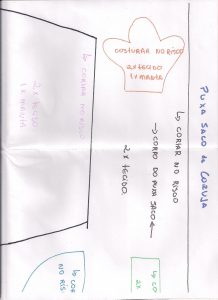 PUXA SACO de CORUJA
COSTURAR NO RISCO
2X TECIDO
1X MANTA
↳ CORTAR NO RISCO
→ CORPO DO PUXA SACO ←
2X TECIDO
↳ CORTAR NO RISCO
2X TECIDO
1X MANTA
↳ CO
2X
↳ COR
NO RIS